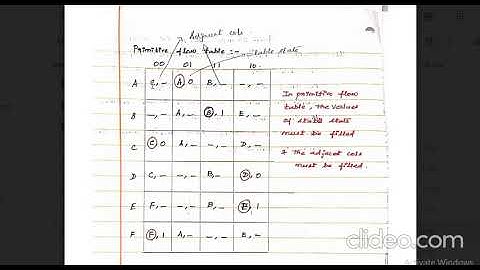 Adjacent cols
Primitive flow table :-
stable state
00 01 11 10
A C, - (A) 0 B, - -, -
B -, - A, - (B), 1 E, -
C (C) 0 A, - -, - D, -
D C, - -, - B, - (D), 0
E F, - -, - B, - (E), 1
F (F), 1 A, - -, - E, -
In primitive flow
table, The values
of stable state
must be filled
& The adjacet cols
must be filled.
clideo.com
Activate Windows